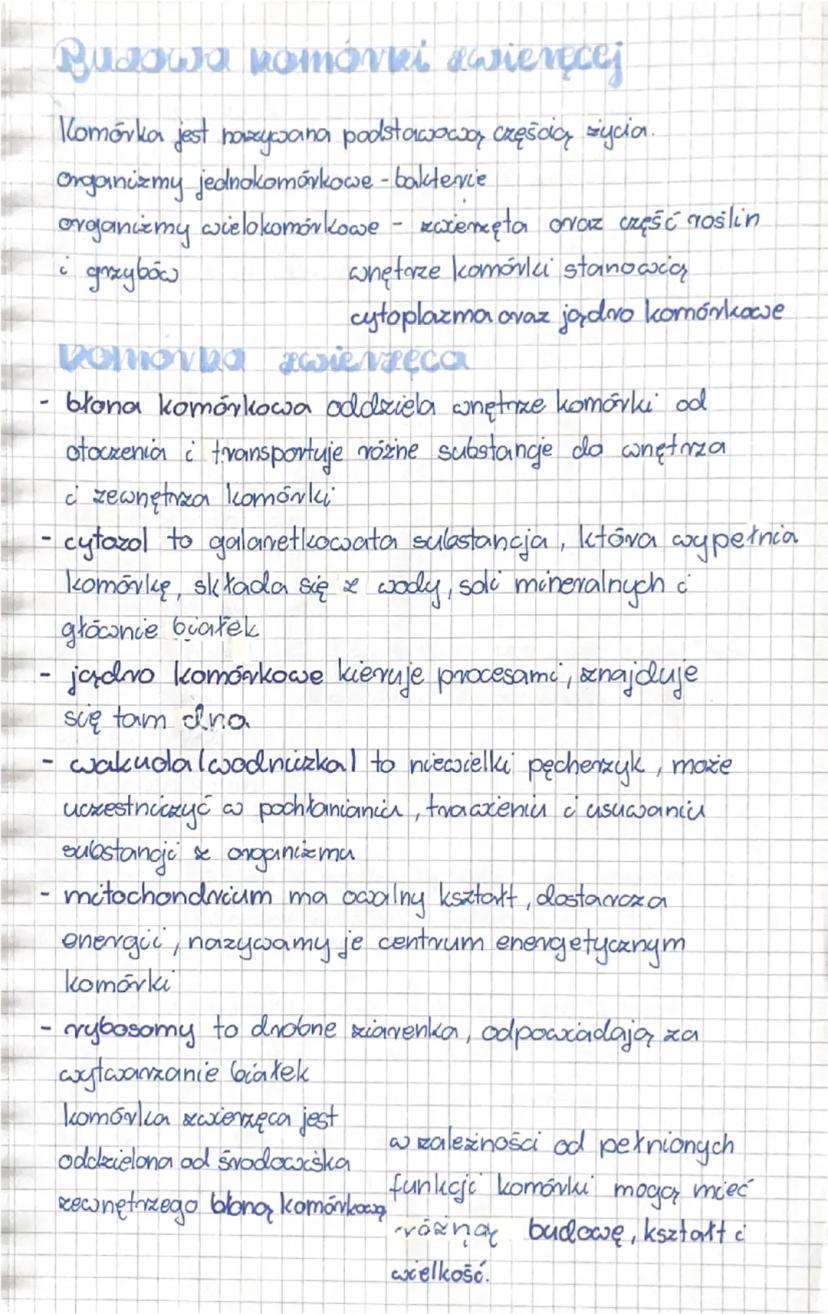 Budowa komórki zwierzęcej
Komórka jest nazywana podstawową częścią życia.
organizmy jednokomórkowe - bakterie
organizmy wielokomórkowe - zwierzęta oraz część roślin
i grzybów
wnętrze komórki stanowią
cytoplazma oraz jądro komórkowe
komórka zwierzęca
- błona komórkowa oddziela wnętrze komórki od
otoczenia i transportuje różne substancje do wnętrza
i zewnętrza komórki
- cytozol to galaretkowata substancja, która wypełnia
komórkę, składa się z wody, soli mineralnych i
głównie białek
- jądro komórkowe kieruje procesami, znajduje
się tam dna
- wakuola (wodniczka) to niewielki pęcherzyk, może
uczestniczyć w pochłanianiu, trawieniu i usuwaniu
substancji z organizmu
- mitochondrium ma owalny kształt, dostarcza
energii, nazywamy je centrum energetycznym
komórki
- rybosomy to drobne ziarenka, odpowiadają za
wytwarzanie białek
komórka zwierzęca jest
oddzielona od środowiska
zewnętrzego błoną komórkową
w zależności od pełnionych
funkcji komórki mogą mieć
różną budowę, kształt i
wielkość.